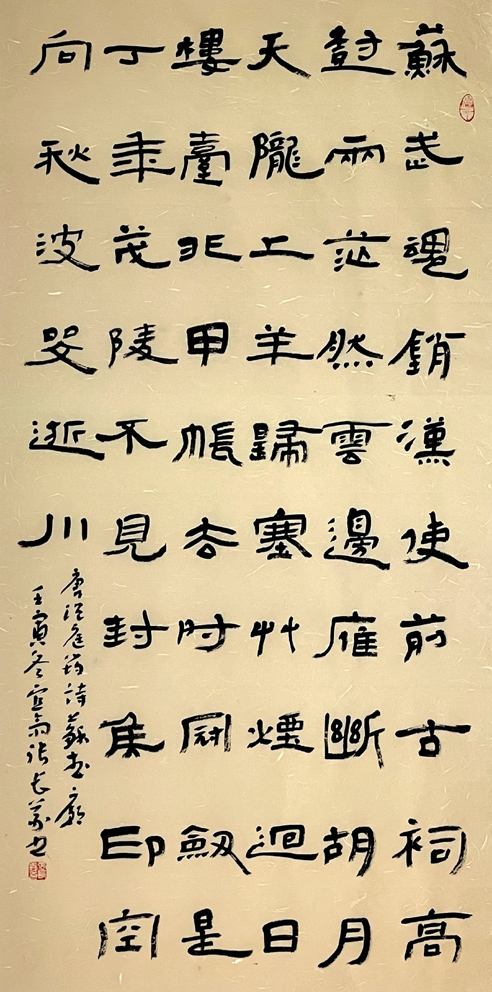 蘇武魂銷漢使前古祠高
尌兩茫然雲邊雁斷胡月
天隴上羊歸塞艸煙迴日
樓臺非甲帳去时冠劍是
丁年茂陵不見封侯印空
向秋波哭逝川
唐温庭筠詩蘇武廟
壬寅冬張長書